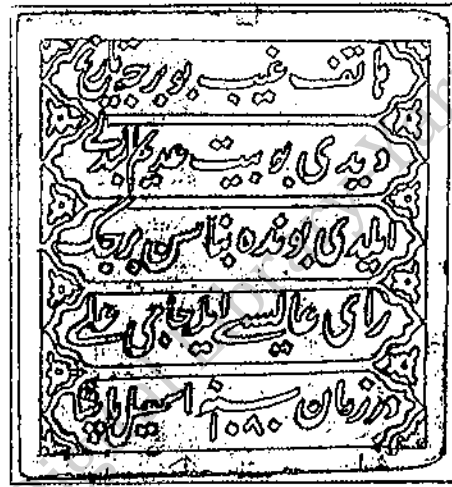 هاتف غيب بو رجا تاريخ
ديدى بو بيت عديم البدلى
ايلدى بونده بناسن برجا
راى عاليسى ايله حاجى على
در زمان اسمعيل پاشا سنه ١٠٨٠